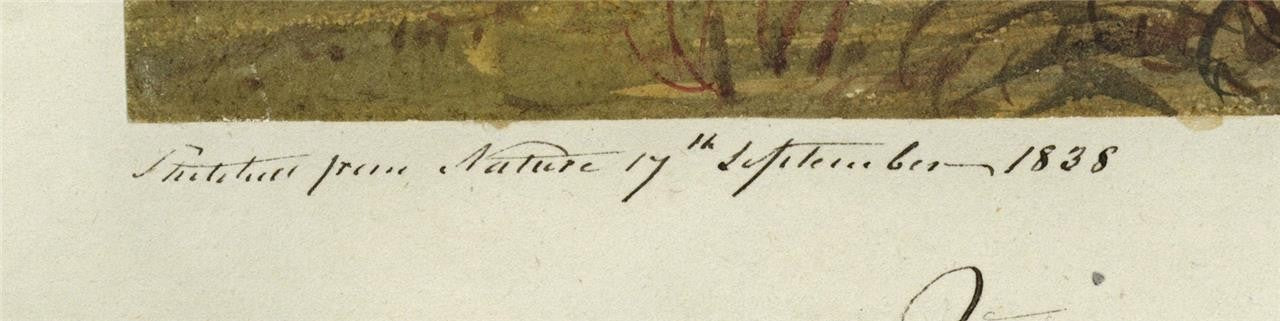 Sketched from Nature 17th September 1838